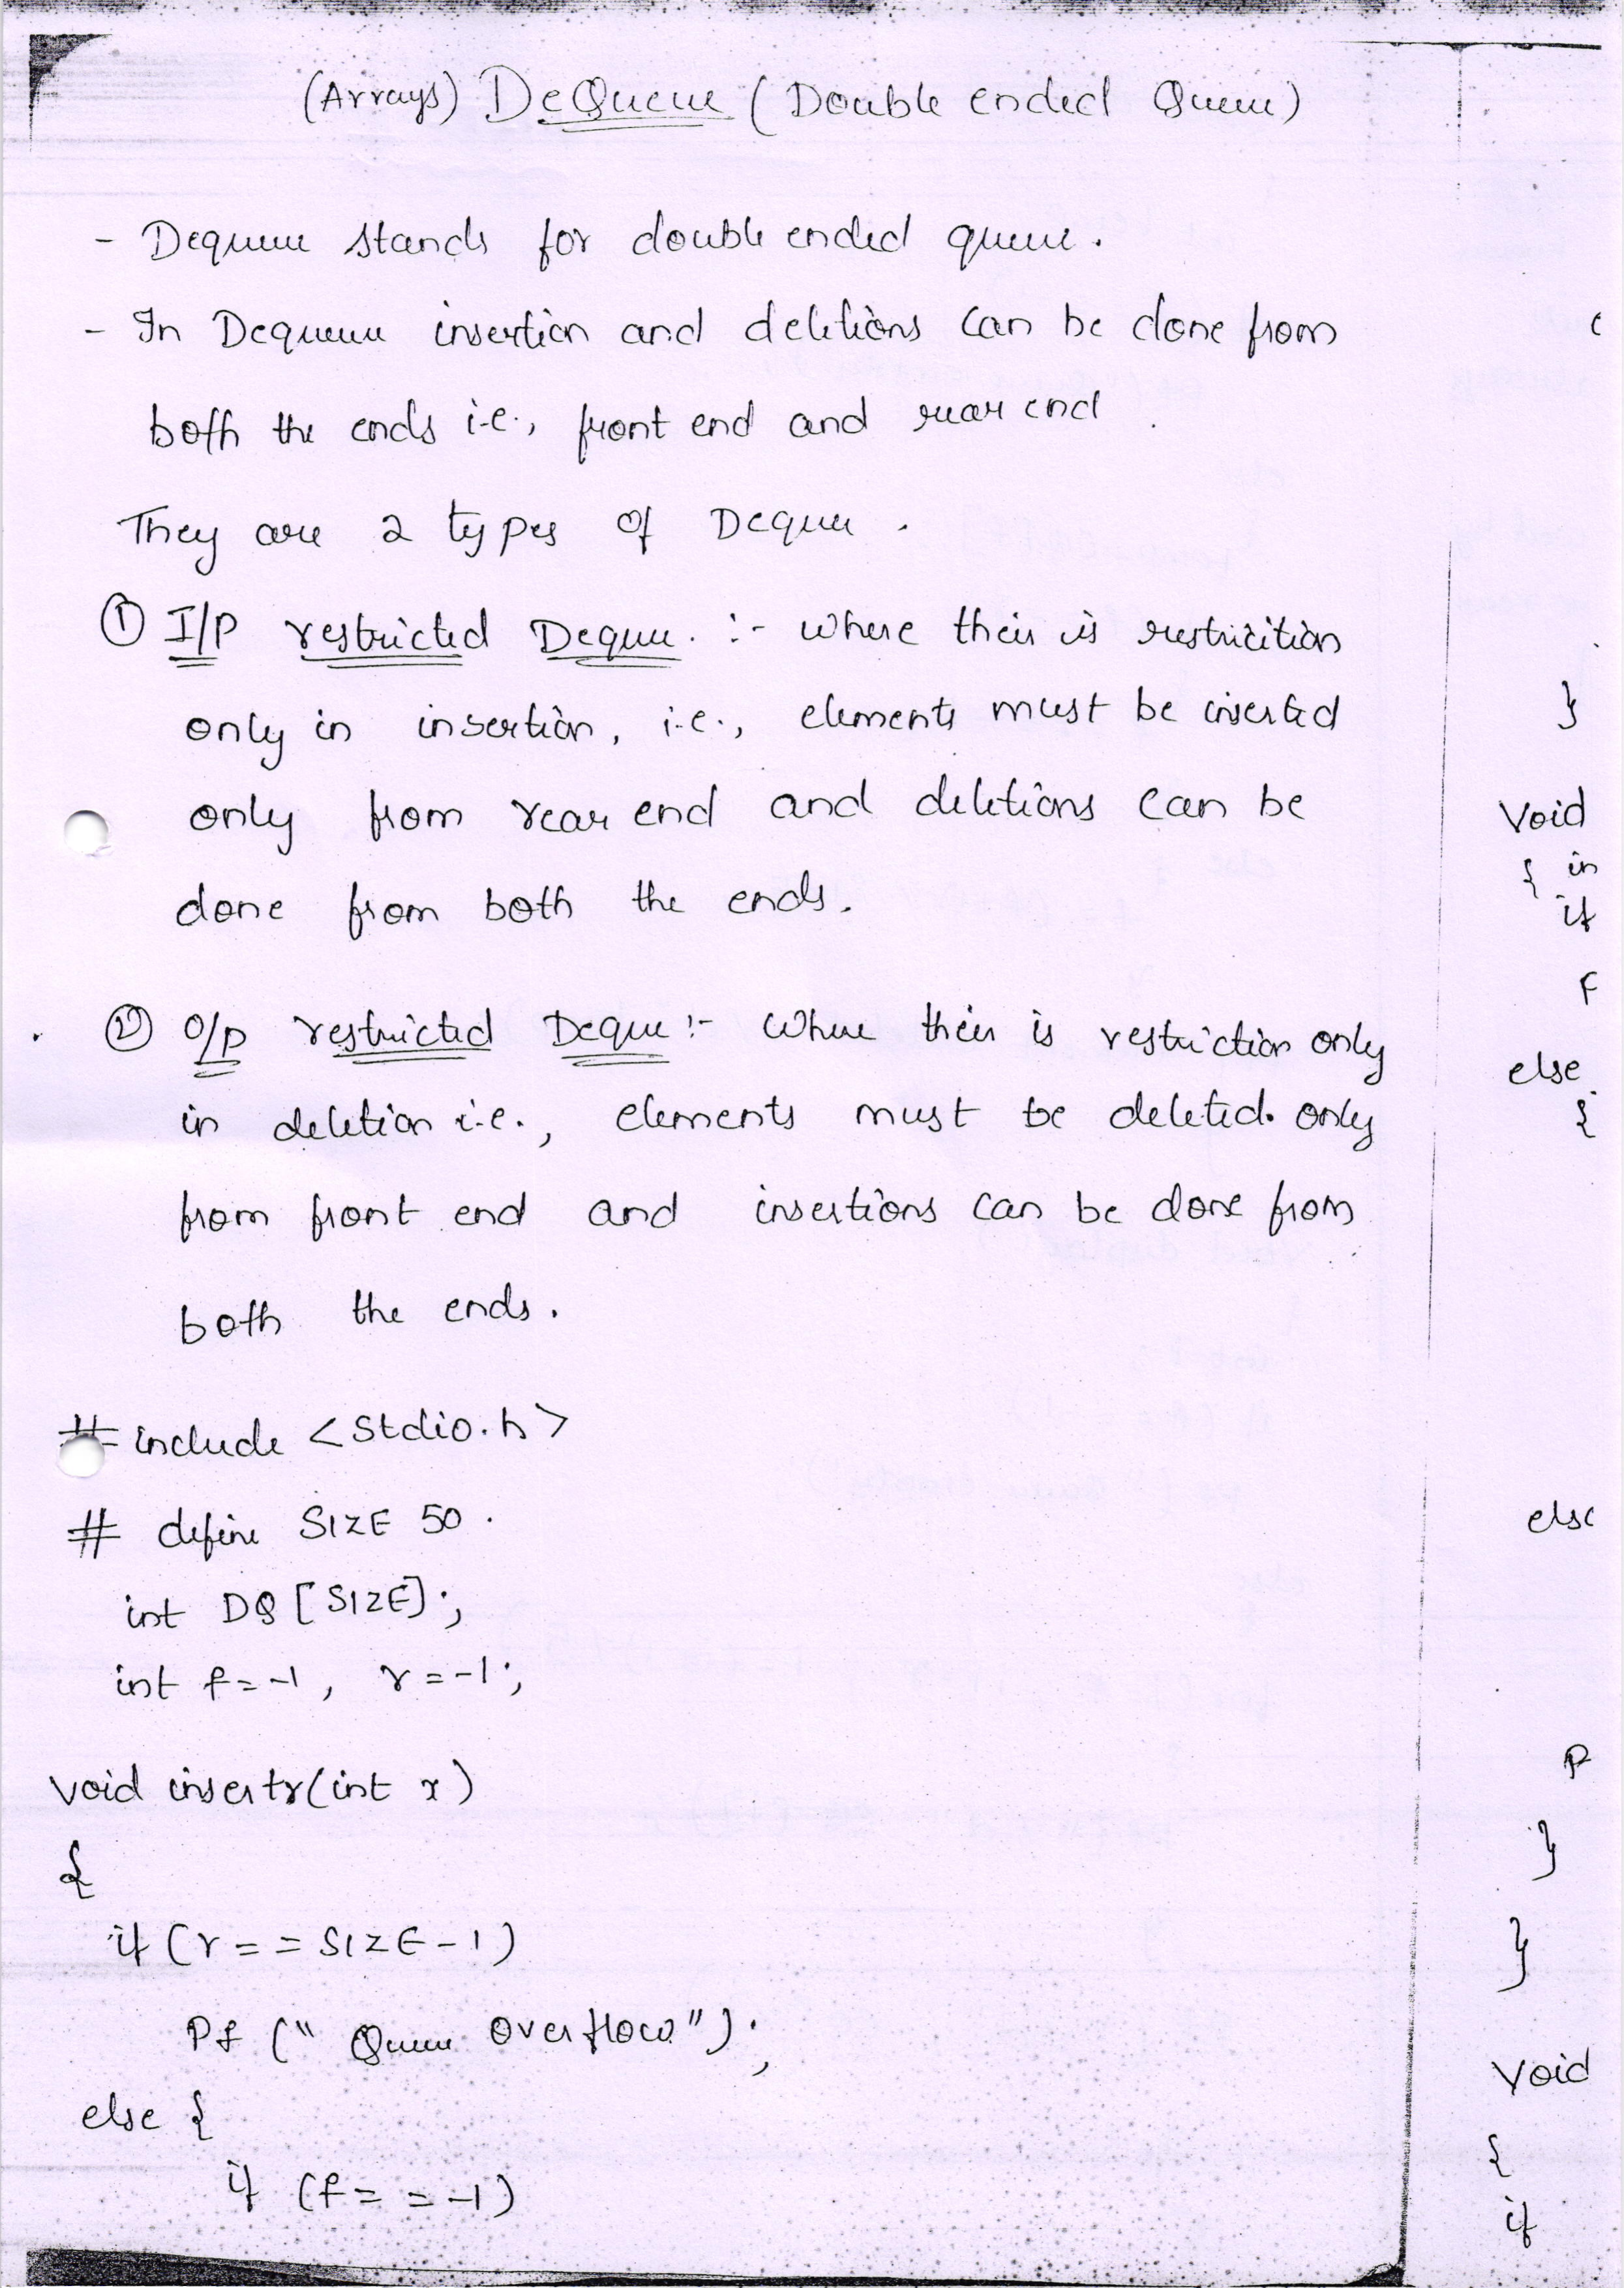 (Arrays) DeQueue (Double ended Queue)
- Dequeue stands for double ended queue.
- In Dequeue insertion and deletions can be done from
both the ends i.e., front end and rear end.
They are 2 types of Deque.
① I/P restricted Deque. :- where their is restricition
only in insertion, i.e., elements must be inserted
only from rear end and deletions can be
done from both the ends.
② O/P restricted Deque :- Where their is restriction only
in deletion i.e., elements must be deleted only
from front end and insertions can be done from
both the ends.
# include <Stdio.h>
# define SIZE 50.
int DQ [SIZE];
int f=-1, r=-1;
void insertr(int x)
{
if (r==SIZE-1)
Pf (" Queue Overflow");
else {
if (f==-1)
}
Void
{ in
if
F
else
{
else
P
}
}
Void
{
if